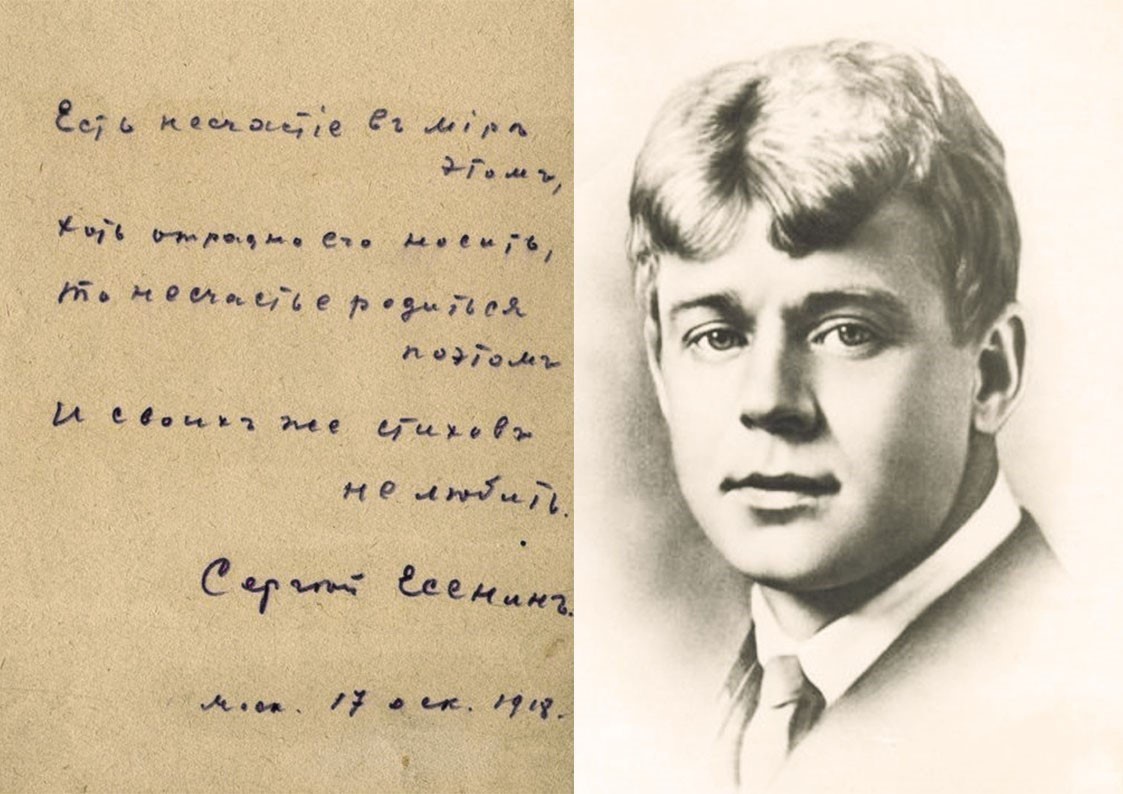 Есть несчастіе въ мірѣ
этомъ,
Хоть отрадно его носить,
То несчастье родиться
поэтомъ
И своихъ же стиховъ
не любить.
Сергѣй Есенинъ.
Моск. 17 1918.